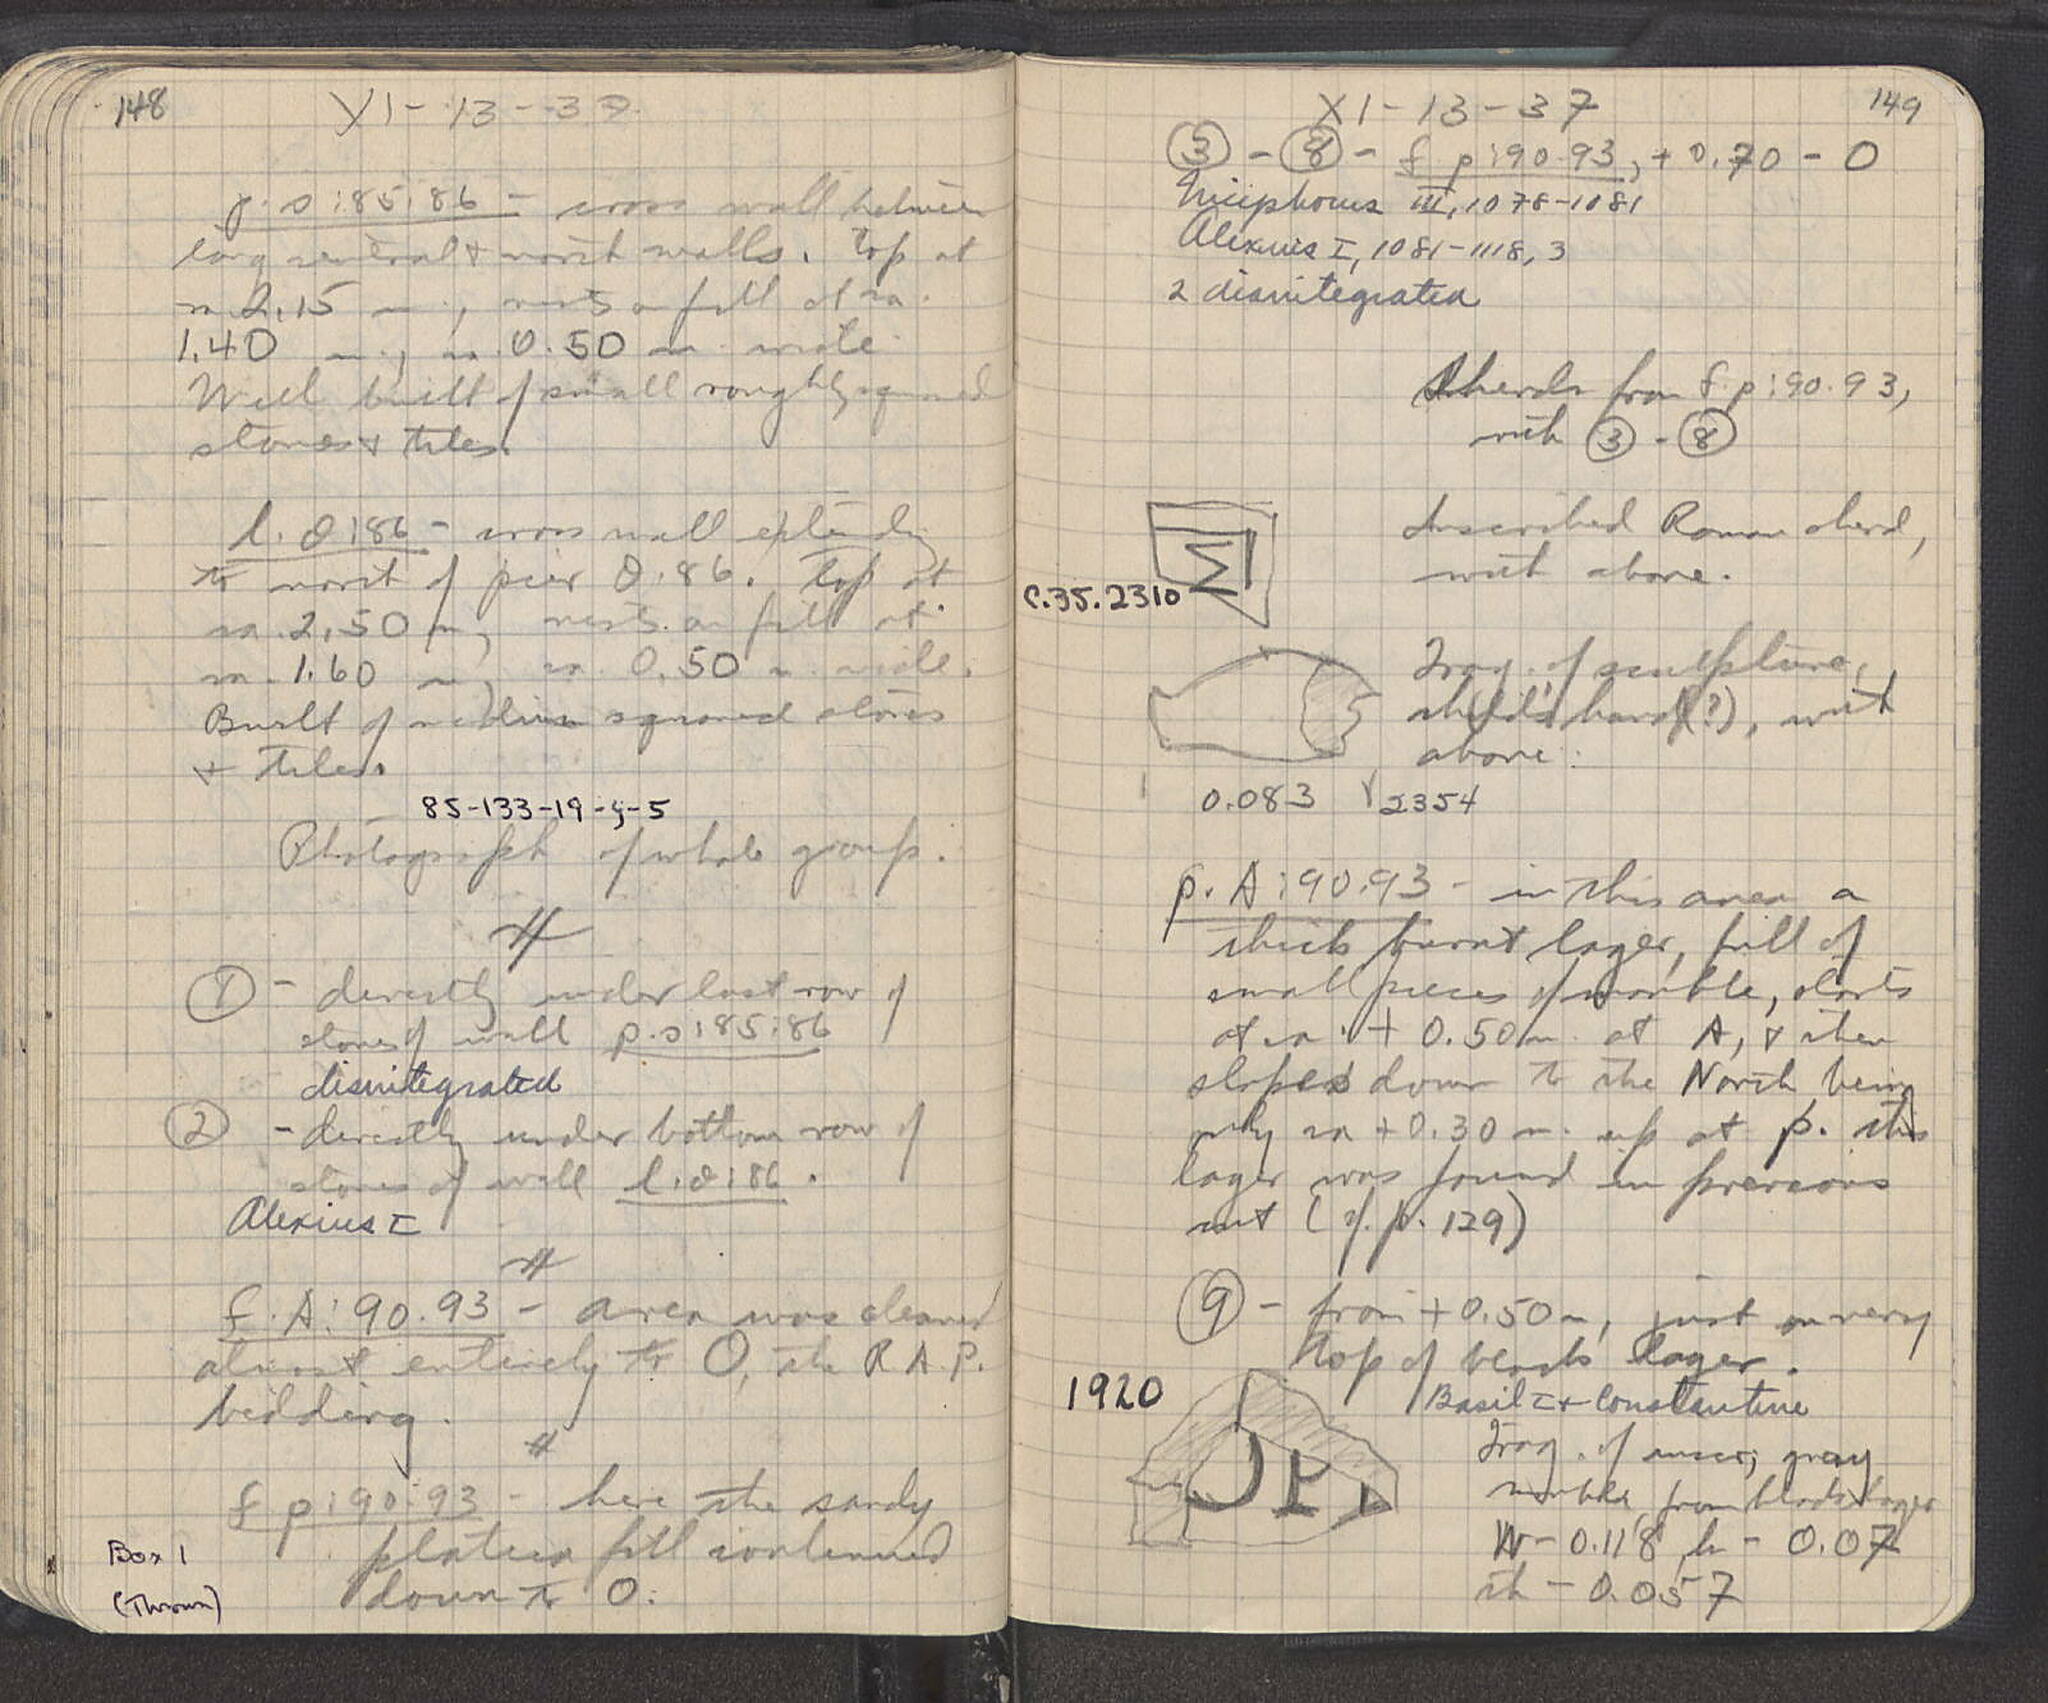 148
XI-13-37
p.s:85:86 - cross wall between
long central & north walls. Top at
ca 2.15 m, rests on fill at ca.
1.40 m., ca. 0.50 m. wide.
Well built of small roughly squared
stones & tiles.
l.θ:86 - cross wall extending
to north of pier θ.86. Top at
ca. 2.50 m, rests on fill at
ca. 1.60 m, ca. 0.50 m. wide.
Built of medium squared stones
+ tiles.
85-133-19-5
Photograph of whole group.
#
① - directly under last row of
stones of wall p.s:85:86
disintegrated
② - directly under bottom row of
stones of wall l.θ:86.
Alexius I
#
f.A:90.93 - area was cleared
almost entirely to 0, the R.A.P.
bedding.
#
f p:90:93 - here the sandy
plateia fill continued
down to 0.
Box 1
(Thrown)
149
XI-13-37
③ - ⑧ - f p:90.93, + 0.70 - 0
Nicephorus III, 1078-1081
Alexius I, 1081-1118, 3
2 disintegrated
Sherds from f p:90.93,
with ③ - ⑧
Inscribed Roman sherd,
with above.
C.35.2310
Frag. of sculpture,
child's hand(?), with
above.
0.083 2354
p. A:90.93 - in this area a
thick burnt layer, full of
small pieces of marble, starts
at ca. + 0.50 m. at A, & then
slopes down to the North being
only ca +0.30 m. up at p. This
layer was found in previous
cut (cf. p. 129)
⑨ - from +0.50 m, just on very
top of black layer.
Basil I + Constantine
1920
Frag. of inscr, gray
marble, from black layer
W - 0.118 h - 0.07
th - 0.057